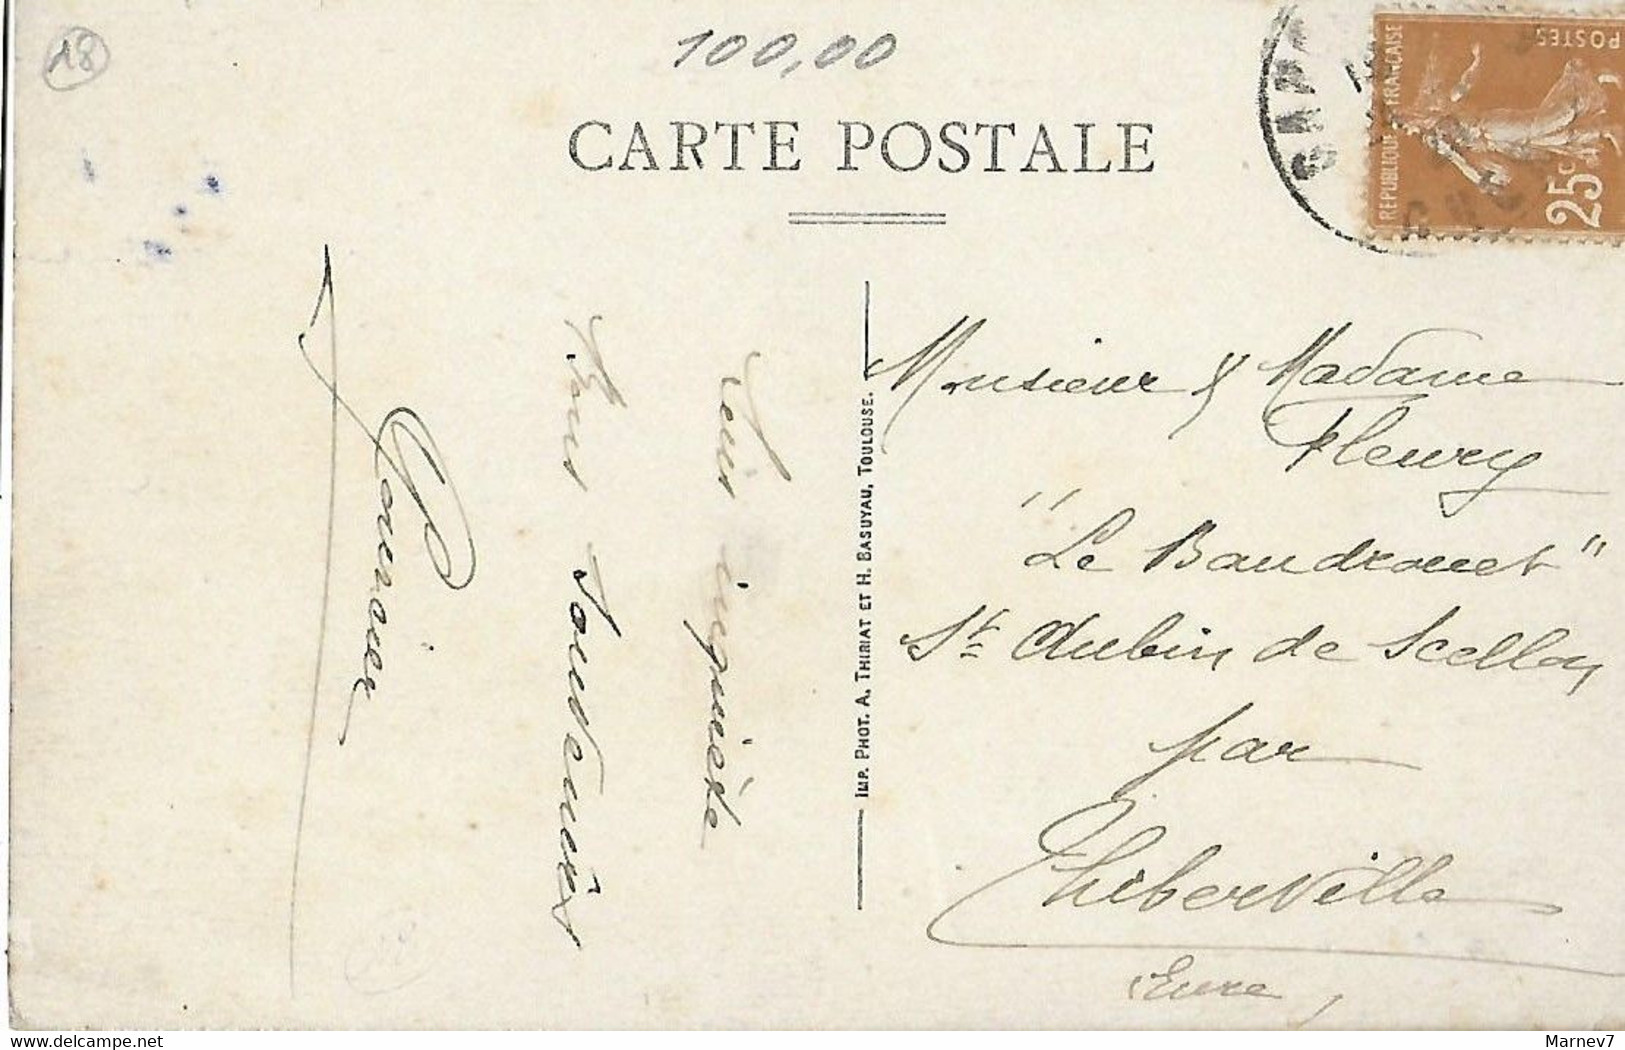 18
100,00
CARTE POSTALE
RÉPUBLIQUE FRANÇAISE
POSTES
25c
Monsieur & Madame
Fleury
"Le Baudrouet"
St Aubin de Scellon
par
Thiberville
Eure
IMP. PHOT. A. THIRIAT ET H. BASUYAU, TOULOUSE.
inquiète
Bons Souvenirs
Marnev7